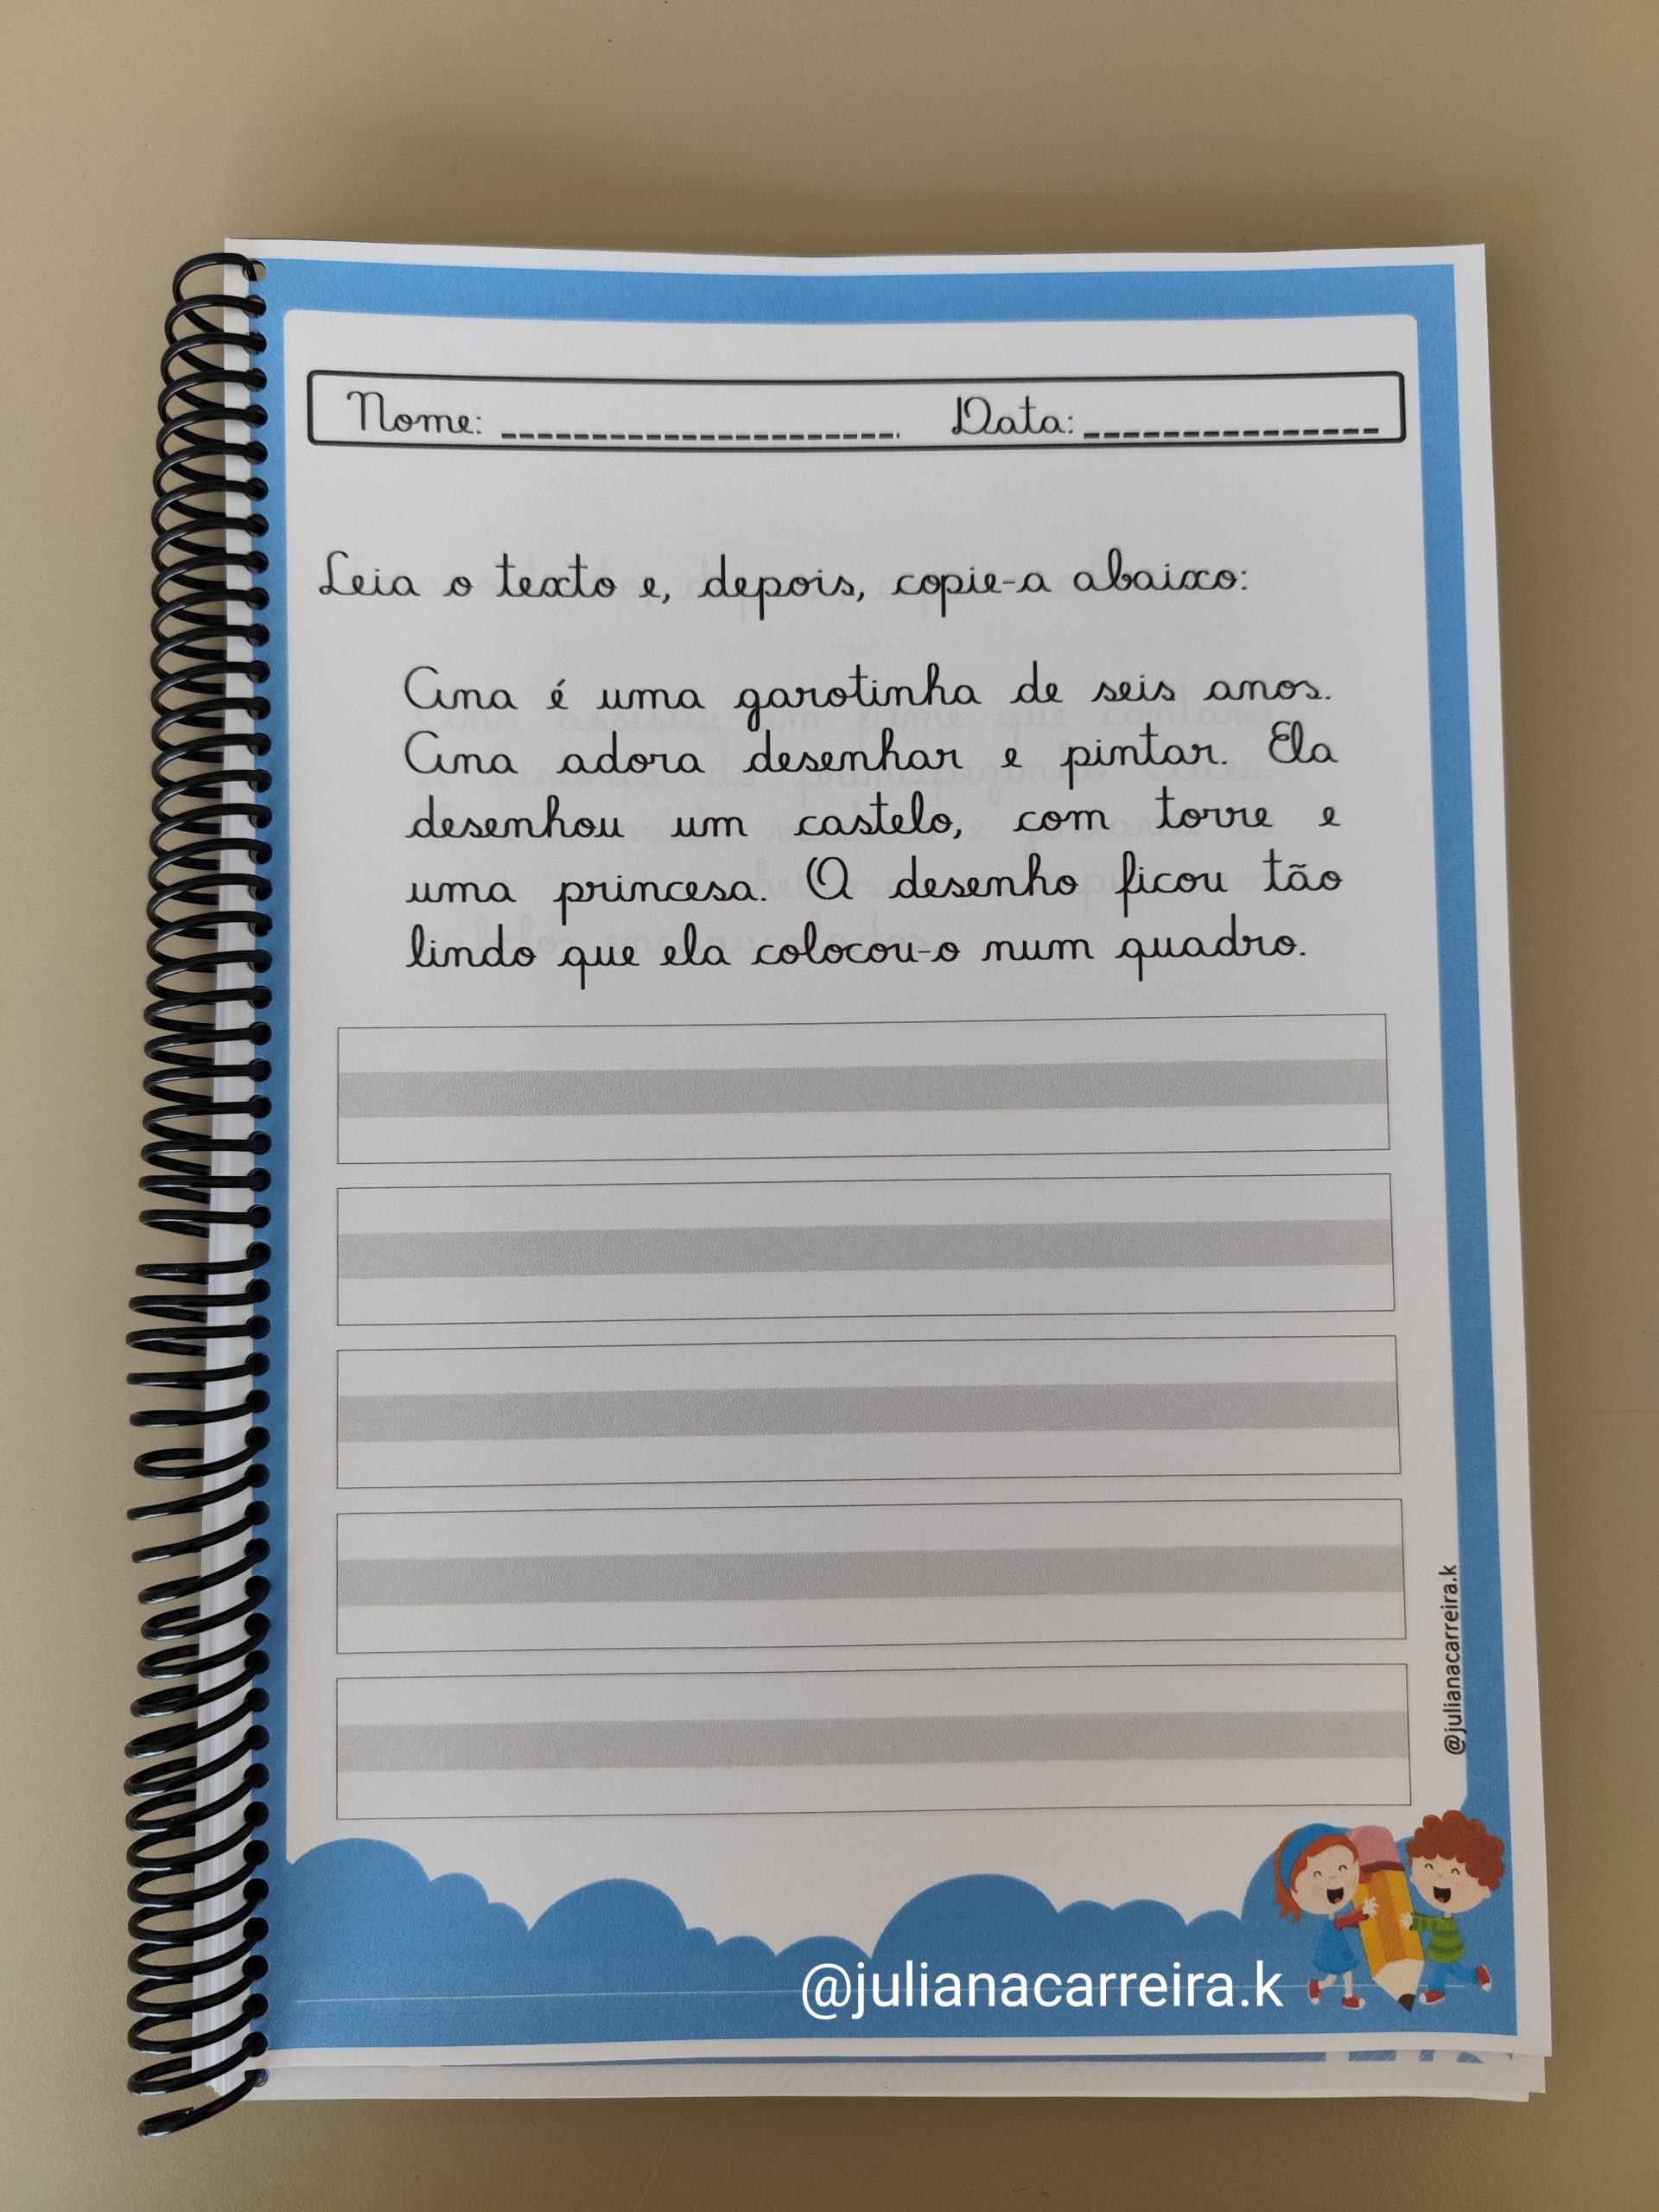 Nome: ____________________ Data: _______________
Leia o texto e, depois, copie-a abaixo:
Ana é uma garotinha de seis anos.
Ana adora desenhar e pintar. Ela
desenhou um castelo, com torre e
uma princesa. O desenho ficou tão
lindo que ela colocou-o num quadro.
@julianacarreira.k
@julianacarreira.k